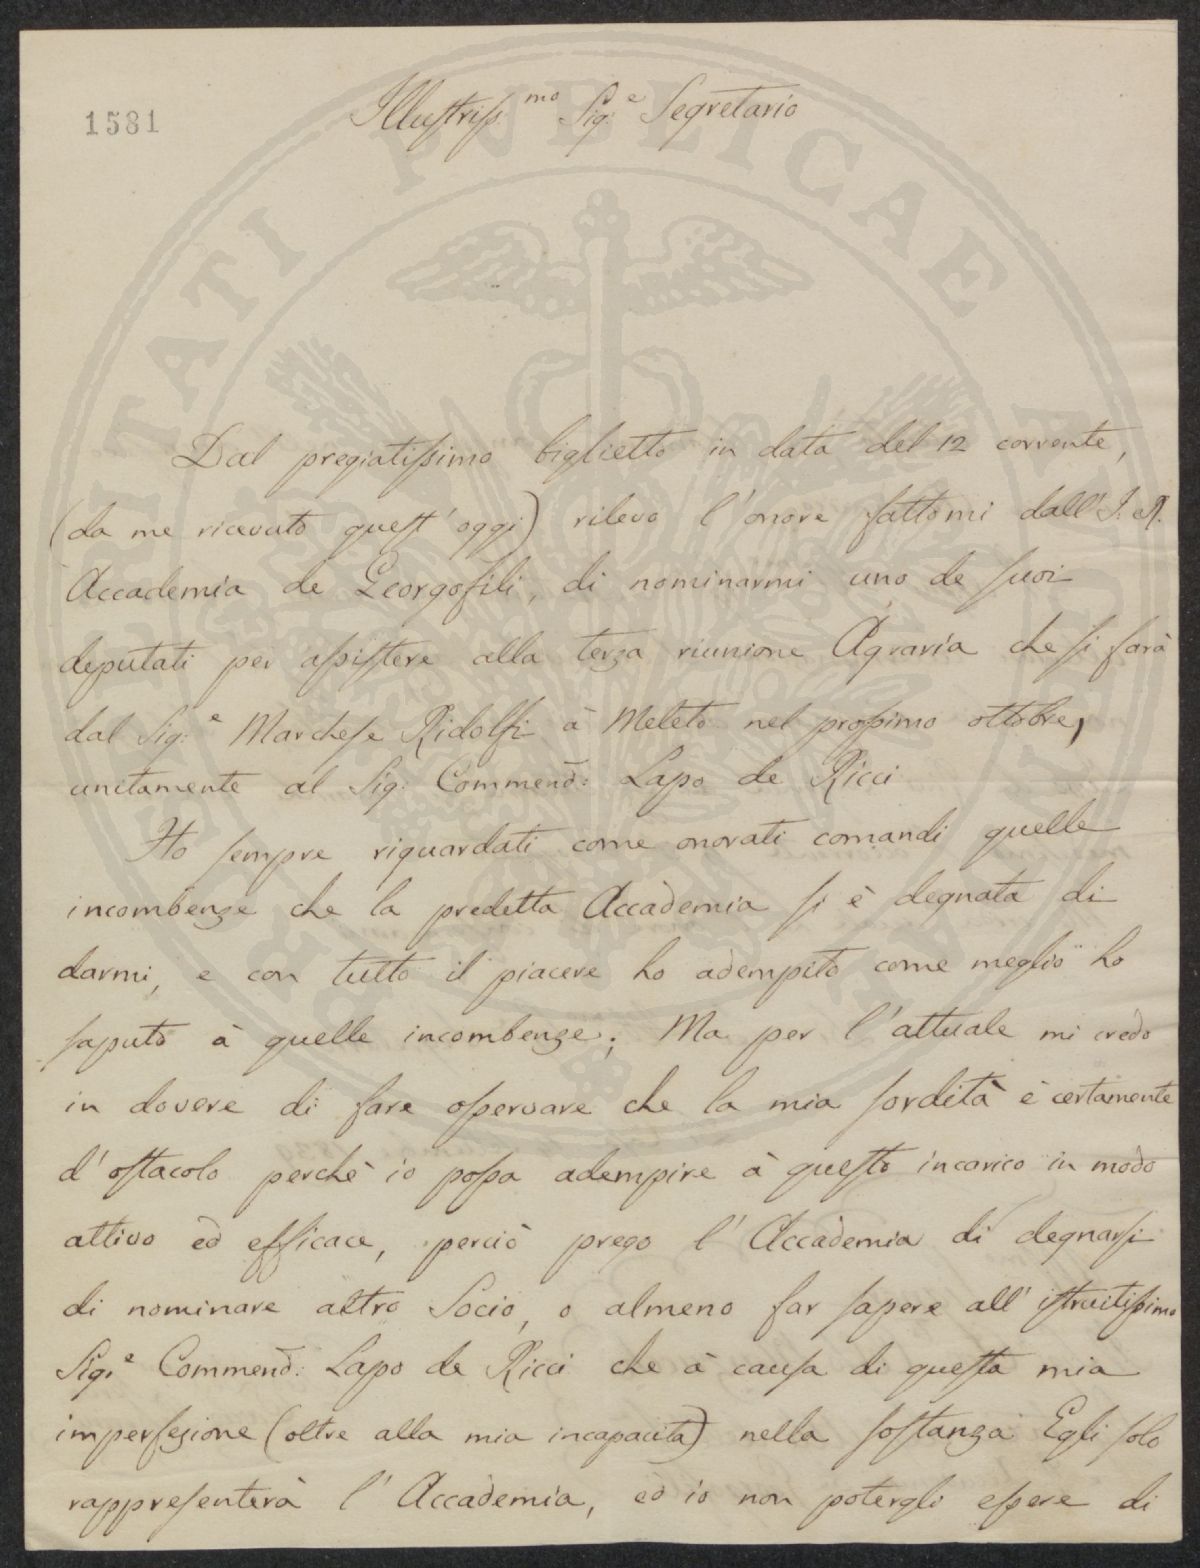 1581
Illustriss.mo Sig.e Segretario
Dal pregiatissimo biglietto in data del 12 corrente,
(da me ricevuto quest'oggi) rilevo l'onore fattomi dall'I. R.
Accademia de Georgofili, di nominarmi uno de suoi
deputati per assistere alla terza riunione Agraria che si farà
dal Sig.e Marchese Ridolfi à Meleto nel prossimo ottobre,
unitamente al Sig. Commend: Lapo de Ricci
Ho sempre riguardati come onorati comandi quelle
incombenze che la predetta Accademia si è degnata di
darmi, e con tutto il piacere ho adempito come meglio ho
saputo à quelle incombenze; Ma per l'attuale mi credo
in dovere di fare osservare che la mia sordità è certamente
d'ostacolo perchè io possa adempire à questo incarico in modo
attivo ed efficace, perciò prego l'Accademia di degnarsi
di nominare altro Socio, o almeno far sapere all'istruitissimo
Sig.e Commend: Lapo de Ricci che à causa di questa mia
imperfezione (oltre alla mia incapacità) nella sostanza Egli solo
rappresenterà l'Accademia, ed io non potergli essere di
PROSPERITATI PVBLICAE AVGENDAE